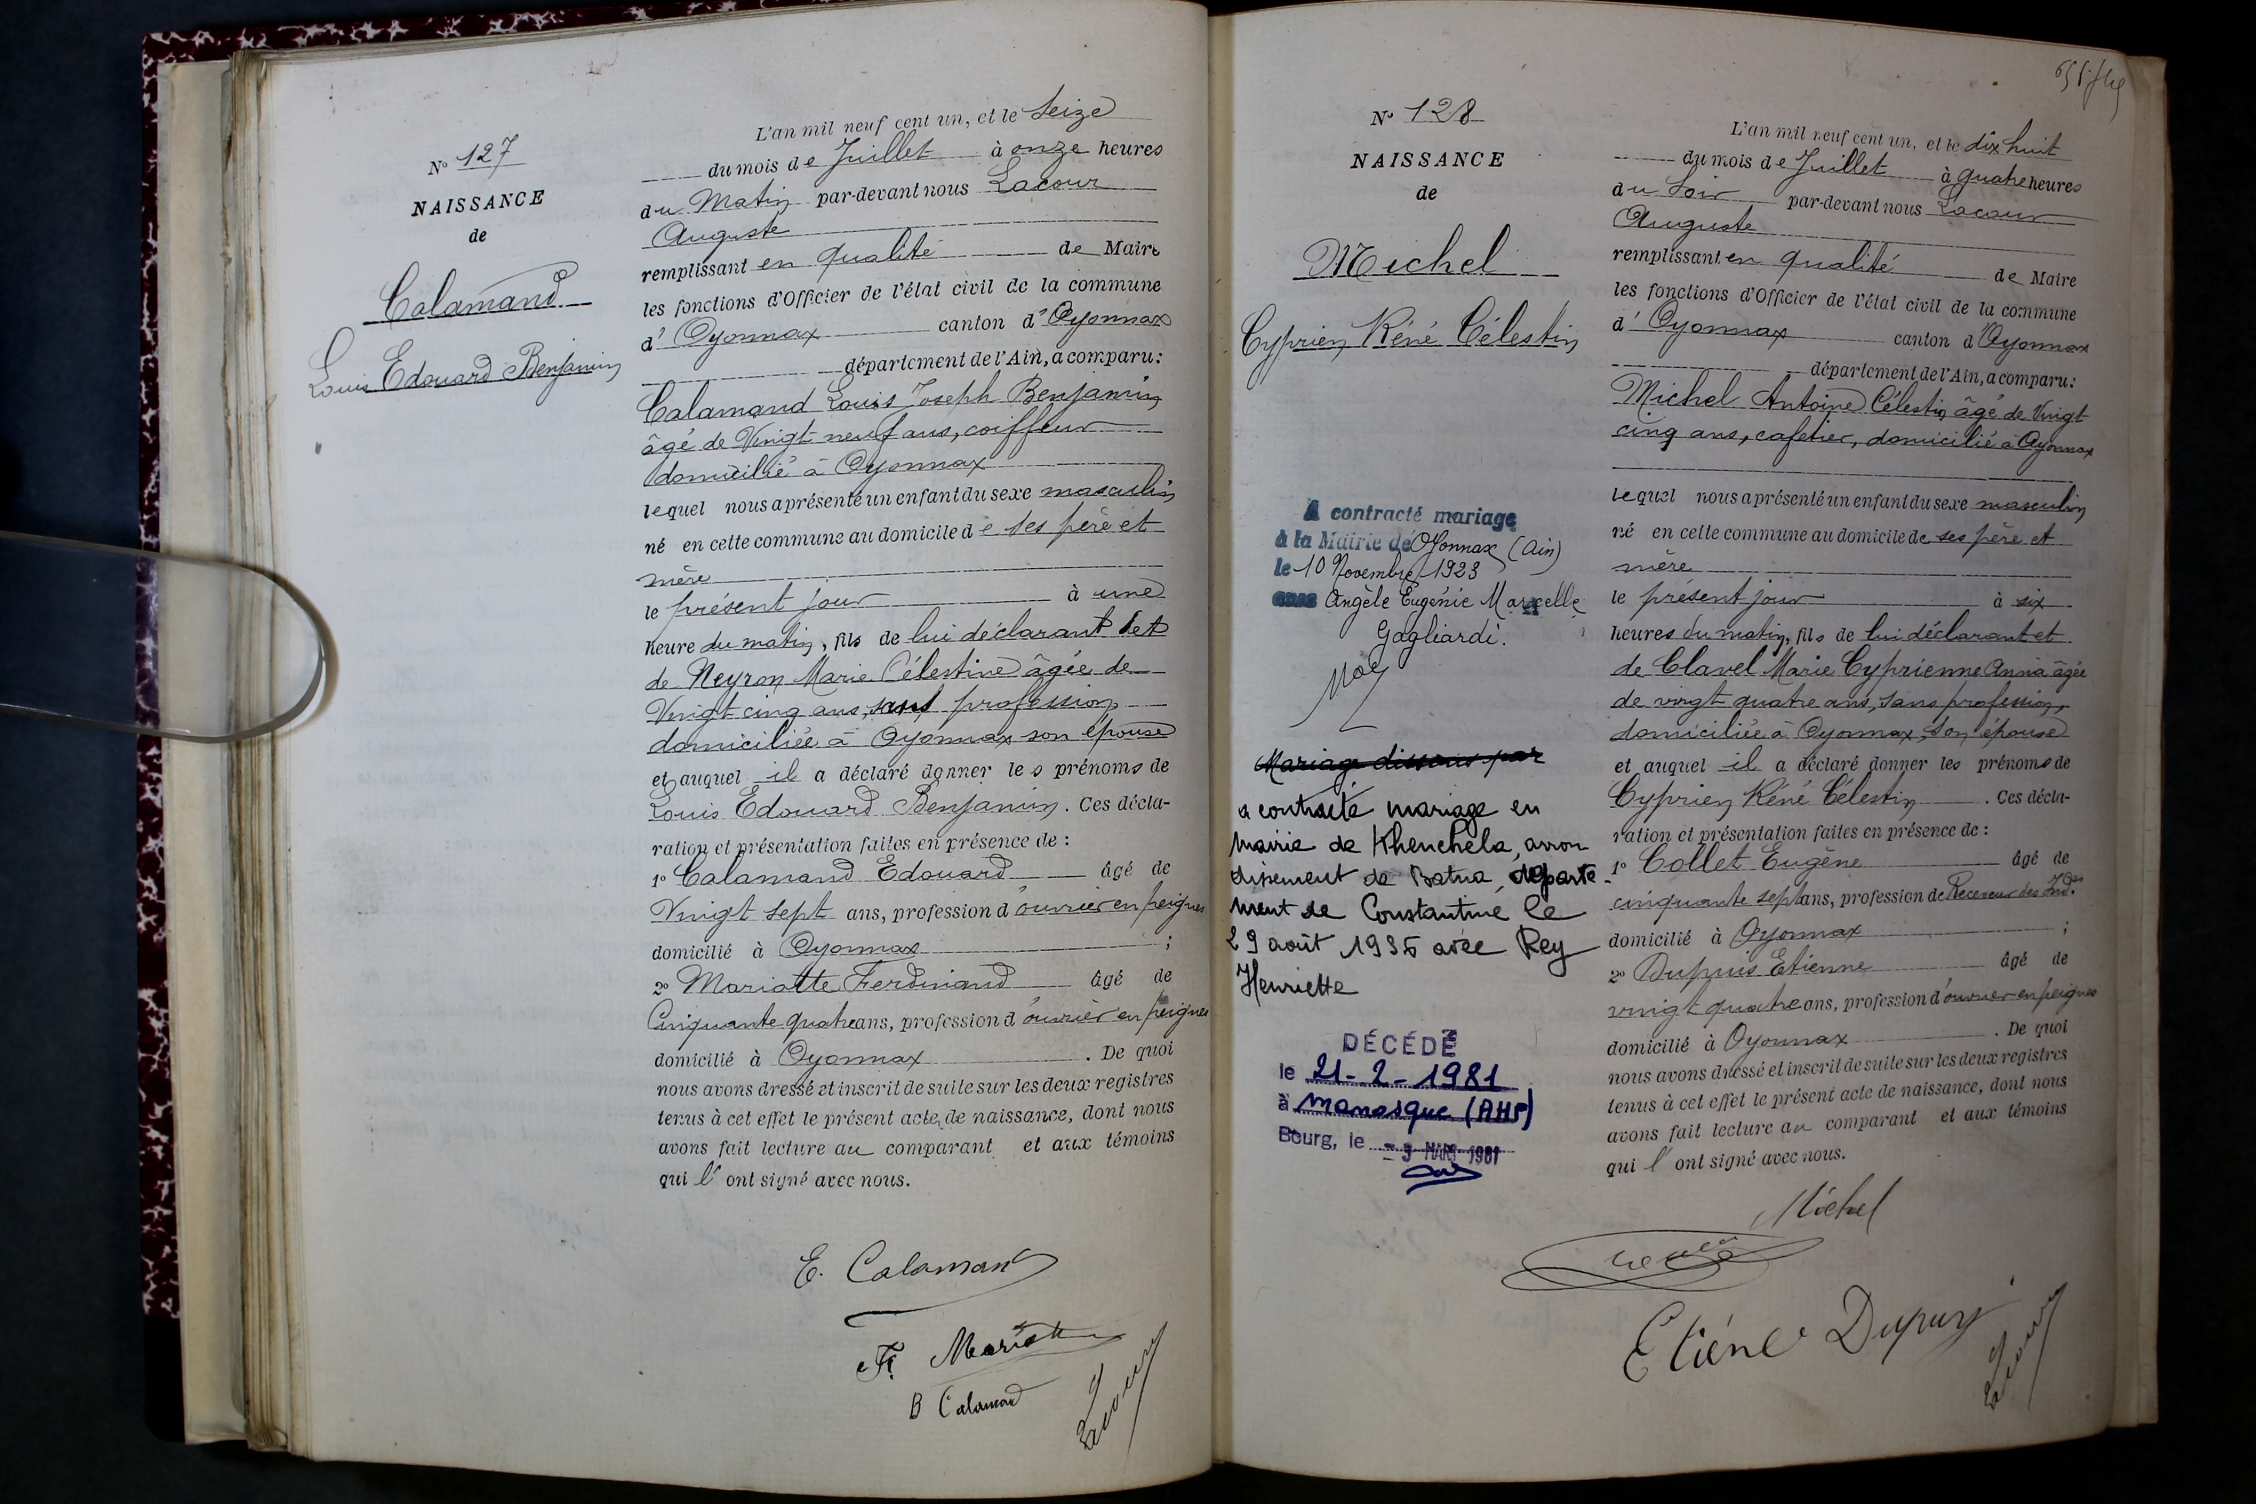 N° 127
NAISSANCE
de
Calamand
Louis Edouard Benjamin
L'an mil neuf cent un, et le Seize
du mois de Juillet à onze heures
du Matin par-devant nous Lacour
Auguste
remplissant en qualité de Maire
les fonctions d'Officier de l'état civil de la commune
d' Oyonnax canton d' Oyonnax
département de l'Ain, a comparu :
Calamand Louis Joseph Benjamin
âgé de Vingt neuf ans, coiffeur
domicilié à Oyonnax
lequel nous a présenté un enfant du sexe masculin
né en cette commune au domicile de ses père et
mère
le présent jour à une
heure du matin, fils de lui déclarant et
de Neyron Marie Célestine âgée de
Vingt cinq ans, sans profession
domiciliée à Oyonnax son épouse
et auquel il a déclaré donner les prénoms de
Louis Edouard Benjamin. Ces décla-
ration et présentation faites en présence de :
1° Calamand Edouard âgé de
Vingt sept ans, profession d'ouvrier en peignes
domicilié à Oyonnax ;
2° Mariotte Ferdinand âgé de
Cinquante quatre ans, profession d'ouvrier en peignes
domicilié à Oyonnax. De quoi
nous avons dressé et inscrit de suite sur les deux registres
tenus à cet effet le présent acte de naissance, dont nous
avons fait lecture au comparant et aux témoins
qui l'ont signé avec nous.
E. Calamand
F. Mariotte
B Calamand
Lacour
N° 128
NAISSANCE
de
Michel
Cyprien Réné Célestin
A contracté mariage
à la Mairie de Oyonnax (Ain)
le 10 Novembre 1923
avec Angèle Eugénie Marcelle
Gagliardi.
Mariage dissous par
a contracté mariage en
mairie de Khenchela, arron
dissement de Batna, départe-
ment de Constantine le
29 août 1935 avec Rey
Henriette
DÉCÉDÉ
le 21-2-1981
à Manosque (AHP)
Bourg, le - 3 MARS 1981
L'an mil neuf cent un, et le dix huit
du mois de Juillet à quatre heures
du Soir par-devant nous Lacour
Auguste
remplissant en qualité de Maire
les fonctions d'Officier de l'état civil de la commune
d' Oyonnax canton d'Oyonnax
département de l'Ain, a comparu :
Michel Antoine Célestin âgé de Vingt
cinq ans, cafetier, domicilié à Oyonnax
lequel nous a présenté un enfant du sexe masculin
né en cette commune au domicile de ses père et
mère
le présent jour à six
heures du matin, fils de lui déclarant et
de Clavel Marie Cyprienne Anna âgée
de vingt quatre ans, sans profession,
domiciliée à Oyonnax, son épouse
et auquel il a déclaré donner les prénoms de
Cyprien Réné Célestin. Ces décla-
ration et présentation faites en présence de :
1° Collet Eugène âgé de
cinquante sept ans, profession de Receveur des Ind.
domicilié à Oyonnax ;
2° Dupuis Etienne âgé de
vingt quatre ans, profession d'ouvrier en peignes
domicilié à Oyonnax. De quoi
nous avons dressé et inscrit de suite sur les deux registres
tenus à cet effet le présent acte de naissance, dont nous
avons fait lecture au comparant et aux témoins
qui l'ont signé avec nous.
Michel
Etiéne Dupuy
Lacour